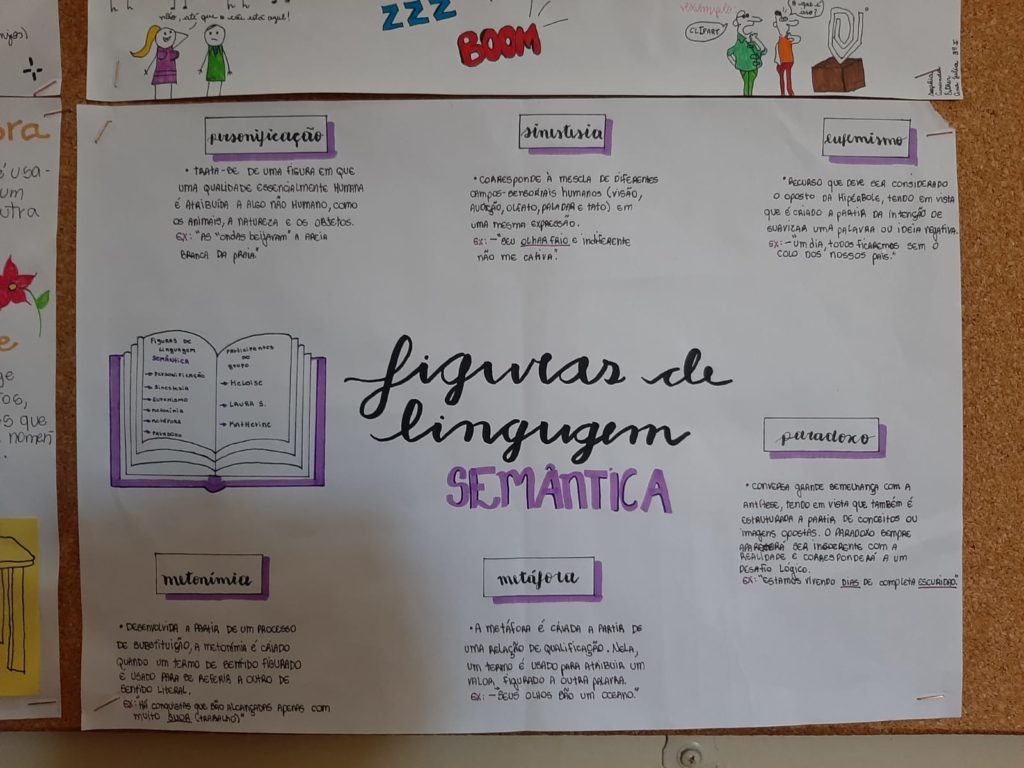 não, até que o céu está aqui!
ZZZ
BOOM
exemplo
CLIPART
ora
é usa-
um
outra
personificação
• TRATA-SE DE UMA FIGURA EM QUE
UMA QUALIDADE ESSENCIALMENTE HUMANA
É ATRIBUÍDA A ALGO NÃO HUMANO, COMO
OS ANIMAIS, A NATUREZA E OS OBJETOS.
EX: "AS "ONDAS BEIJAVAM" A AREIA
BRANCA DA PRAIA."
sinestesia
• CORRESPONDE À MESCLA DE DIFERENTES
CAMPOS-SENSORIAIS HUMANOS (VISÃO,
AUDIÇÃO, OLFATO, PALADAR E TATO) EM
UMA MESMA EXPRESSÃO.
EX: -"SEU OLHAR FRIO E INDIFERENTE
NÃO ME CATIVA."
eufemismo
• RECURSO QUE DEVE SER CONSIDERADO
O OPOSTO DA HIPÉRBOLE, TENDO EM VISTA
QUE É CRIADO A PARTIR DA INTENÇÃO DE
SUAVIZAR UMA PALAVRA OU IDEIA NEGATIVA.
EX: -"UM DIA, TODOS FICAREMOS SEM O
COLO DOS NOSSOS PAIS."
FIGURAS DE
LINGUAGEM
SEMÂNTICA
→ PERSONIFICAÇÃO
→ SINESTESIA
→ EUFEMISMO
→ METONÍMIA
→ METÁFORA
→ PARADOXO
PARTICIPANTES
DO
GRUPO
→ HELOISE
→ LAURA S.
→ KATHERINE
figuras de
lingugem
SEMÂNTICA
paradoxo
• CONVERSA GRANDE SEMELHANÇA COM A
ANTÍTESE, TENDO EM VISTA QUE TAMBÉM É
ESTRUTURADA A PARTIR DE CONCEITOS OU
IMAGENS OPOSTAS. O PARADOXO SEMPRE
SER INCOERENTE COM A
REALIDADE E CORRESPONDERÁ A UM
DESAFIO LÓGICO.
EX: "ESTAMOS VIVENDO DIAS DE COMPLETA ESCURIDÃO."
metonímia
• DESENVOLVIDA A PARTIR DE UM PROCESSO
DE SUBSTITUIÇÃO, A METONÍMIA É CRIADO
QUANDO UM TERMO DE SENTIDO FIGURADO
É USADO PARA SE REFERIR A OUTRO DE
SENTIDO LITERAL.
EX: "HÁ CONQUISTAS QUE SÃO ALCANÇADAS APENAS COM
MUITO SUOR (TRABALHO)"
metáfora
• A METÁFORA É CRIADA A PARTIR DE
UMA RELAÇÃO DE QUALIFICAÇÃO. NELA,
UM TERMO É USADO PARA ATRIBUIR UM
VALOR FIGURADO A OUTRA PALAVRA.
EX: -"SEUS OLHOS SÃO UM OCEANO."